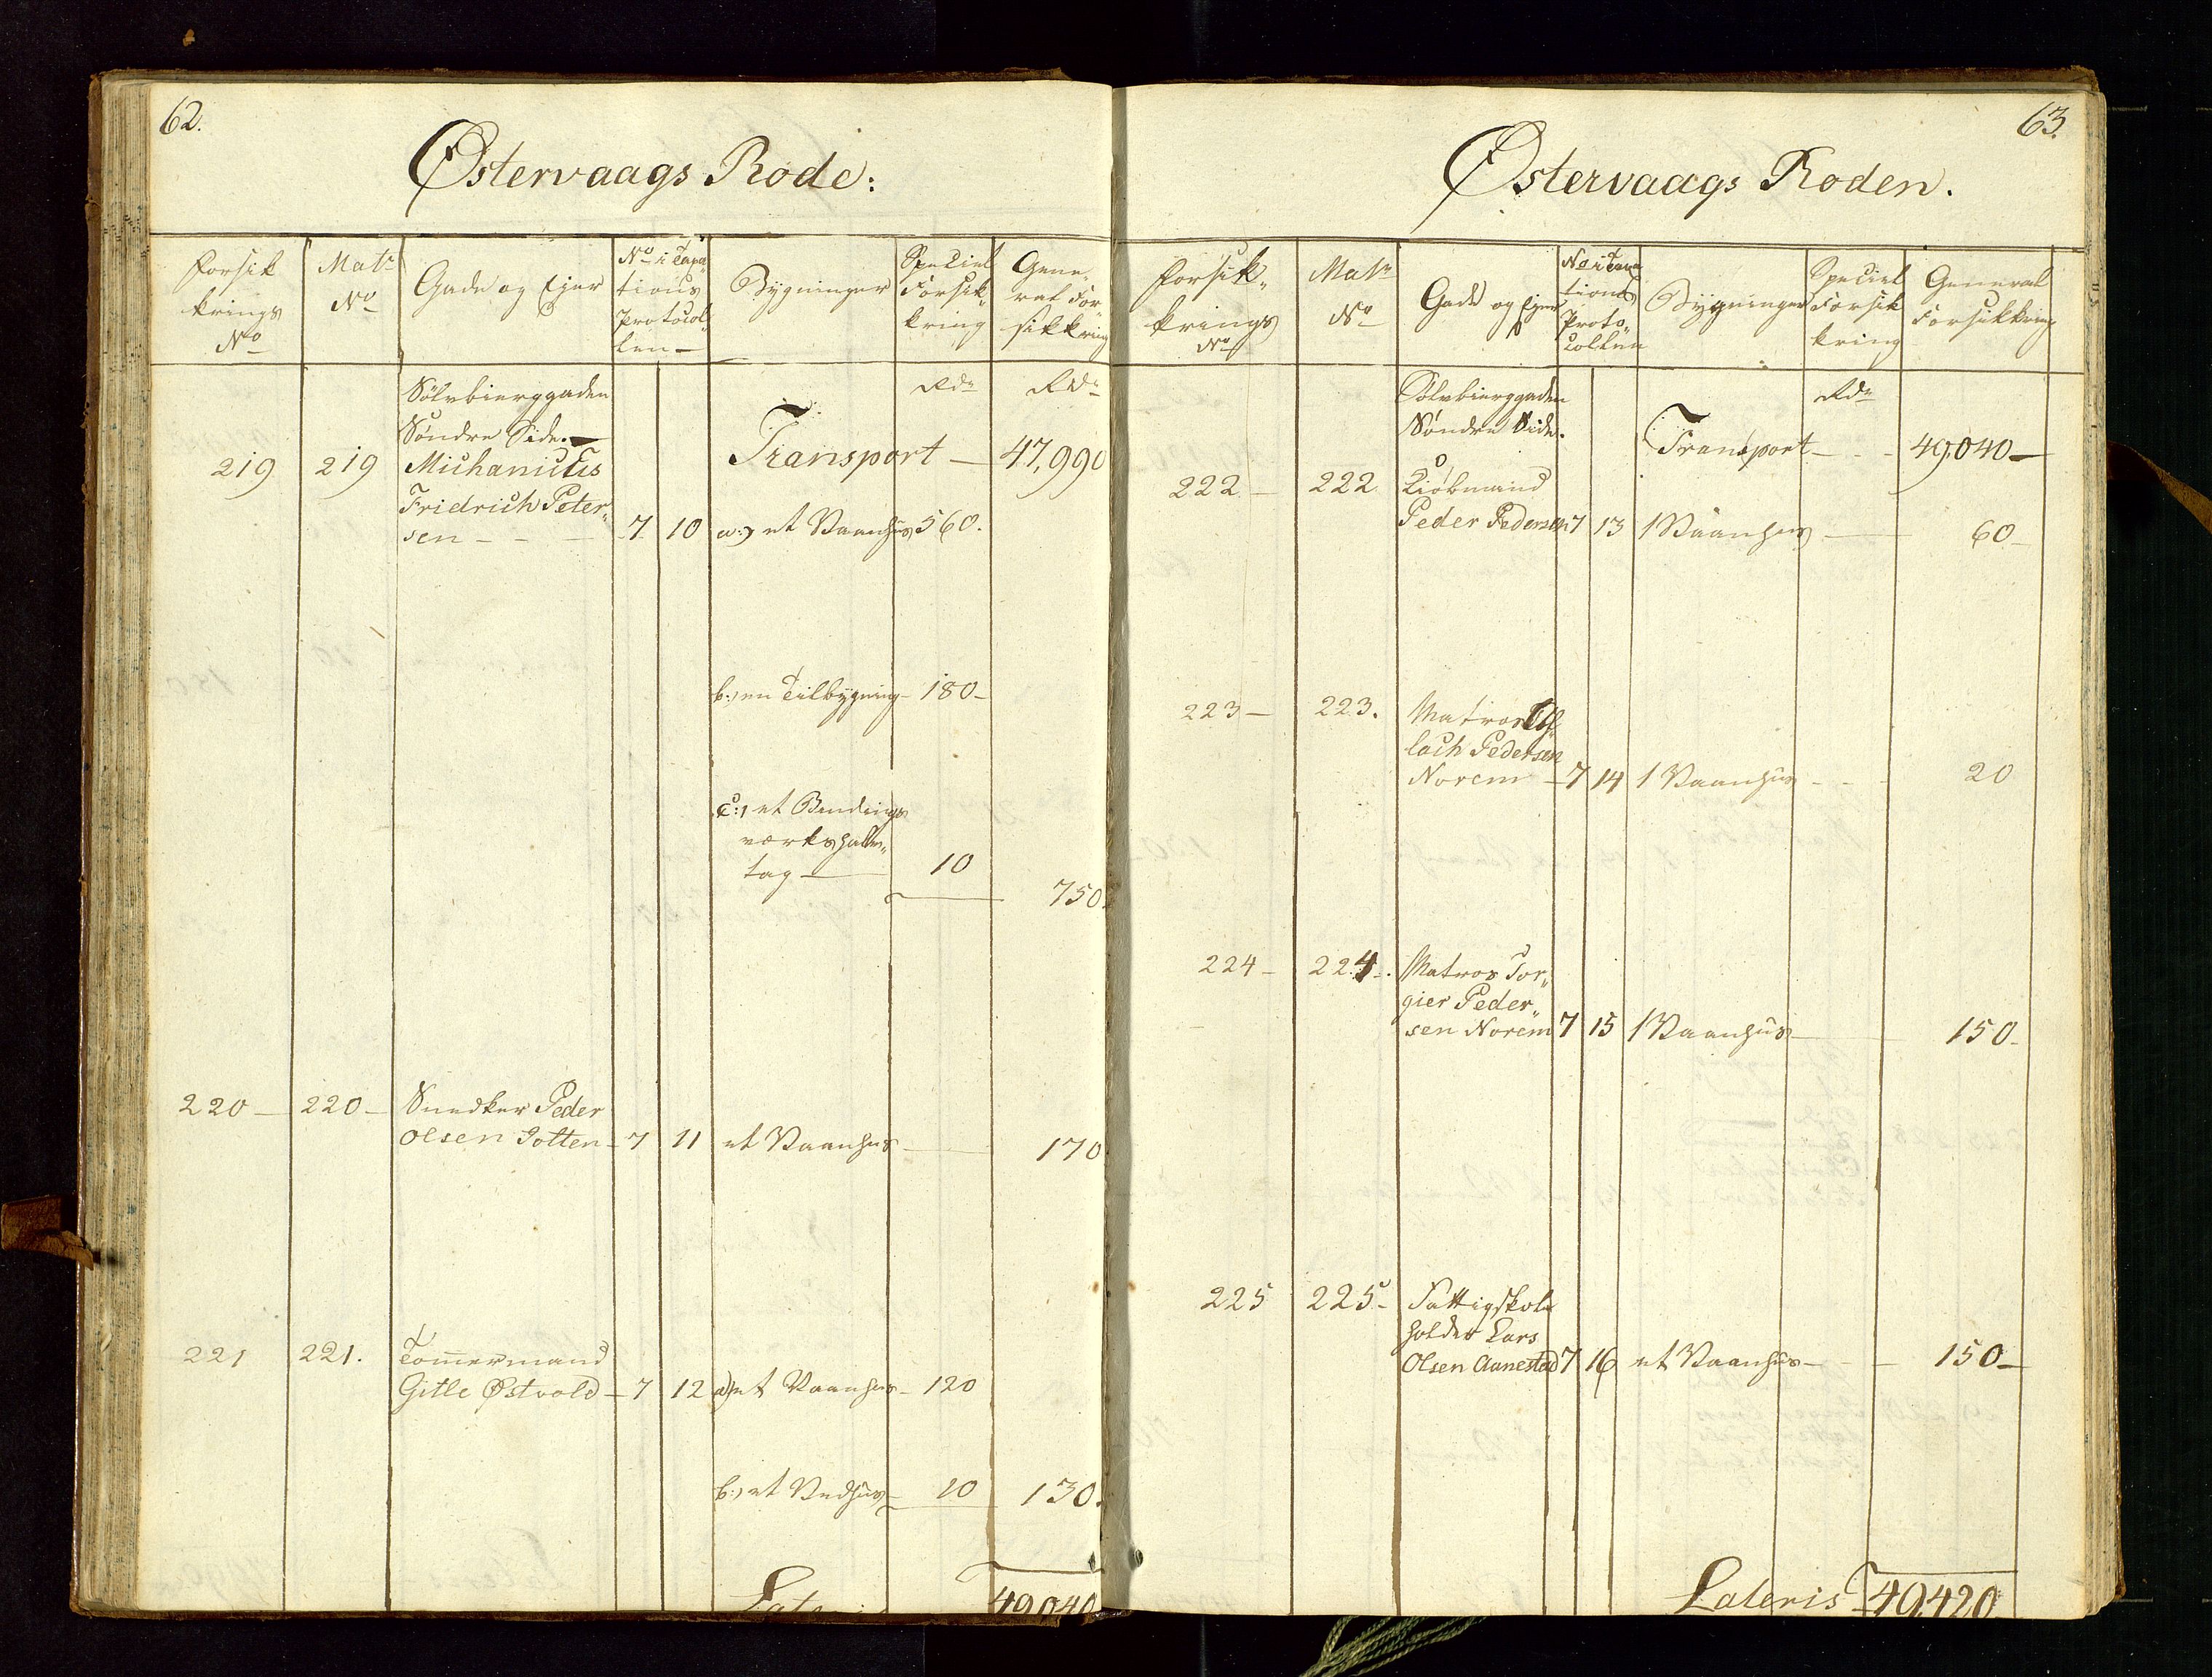 62.
Østervaags Rode:
Forsik
krings
No
Matr
No
Gade og Ejer
No i Taxa„
tions
Protocol„
len
Bygninger
Speciel
Forsik„
kring
Gene„
ral For„
sikkring
Sölvbierggaden
Söndre Side.
Rdr
Rdr
Transport — 47,990
219 219 Michanicus
Fridrich Peter„
sen - - — 7 10 a:) et Vaanhus 560.
b:) en Tilbygning - 180 -
c:) et Bindings
værks halv„
tag — 10
750.
220 — 220 - Snedker Peder
Olsen Jotten - 7 11 et Vaanhus — 170
221 221. Tömermand
Gitle Østvold - 7 12 a) et Vaanhus - 120
b:) et Vedhus - 10 130.
Lateris 49040
63.
Østervaags Roden.
Forsik„
krings
No
Matr
No
Gade og Ejer
No i Taxa
tions
Proto„
collen
Bygninger
Speciel
Forsik
kring
General
Forsikkring
Sölvbierggaden
Söndre Side.
Rdr
Transport - - - 49,040 —
222 — 222 Kiöbmand
Peder Pedersen 7 13 1 Vaanhus — 60 -
223 — 223. Matros
lach Pedersen
Norem — 7 14 1 Vaanhus - - - 20
224 - 224 -. Matros Tor„
gier Peder„
sen Norem 7 15 1 Vaanhus — 150 -
225 225 - Fattigskole
holder Lars
Olsen Aanestad 7 16 et Vaanhus - - — 150 -
Lateris 49,420